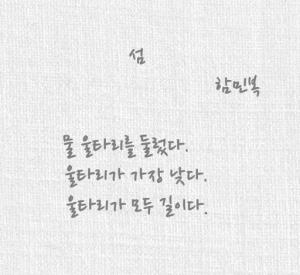 섬
함민복
물 울타리를 둘렀다.
울타리가 가장 낮다.
울타리가 모두 길이다.